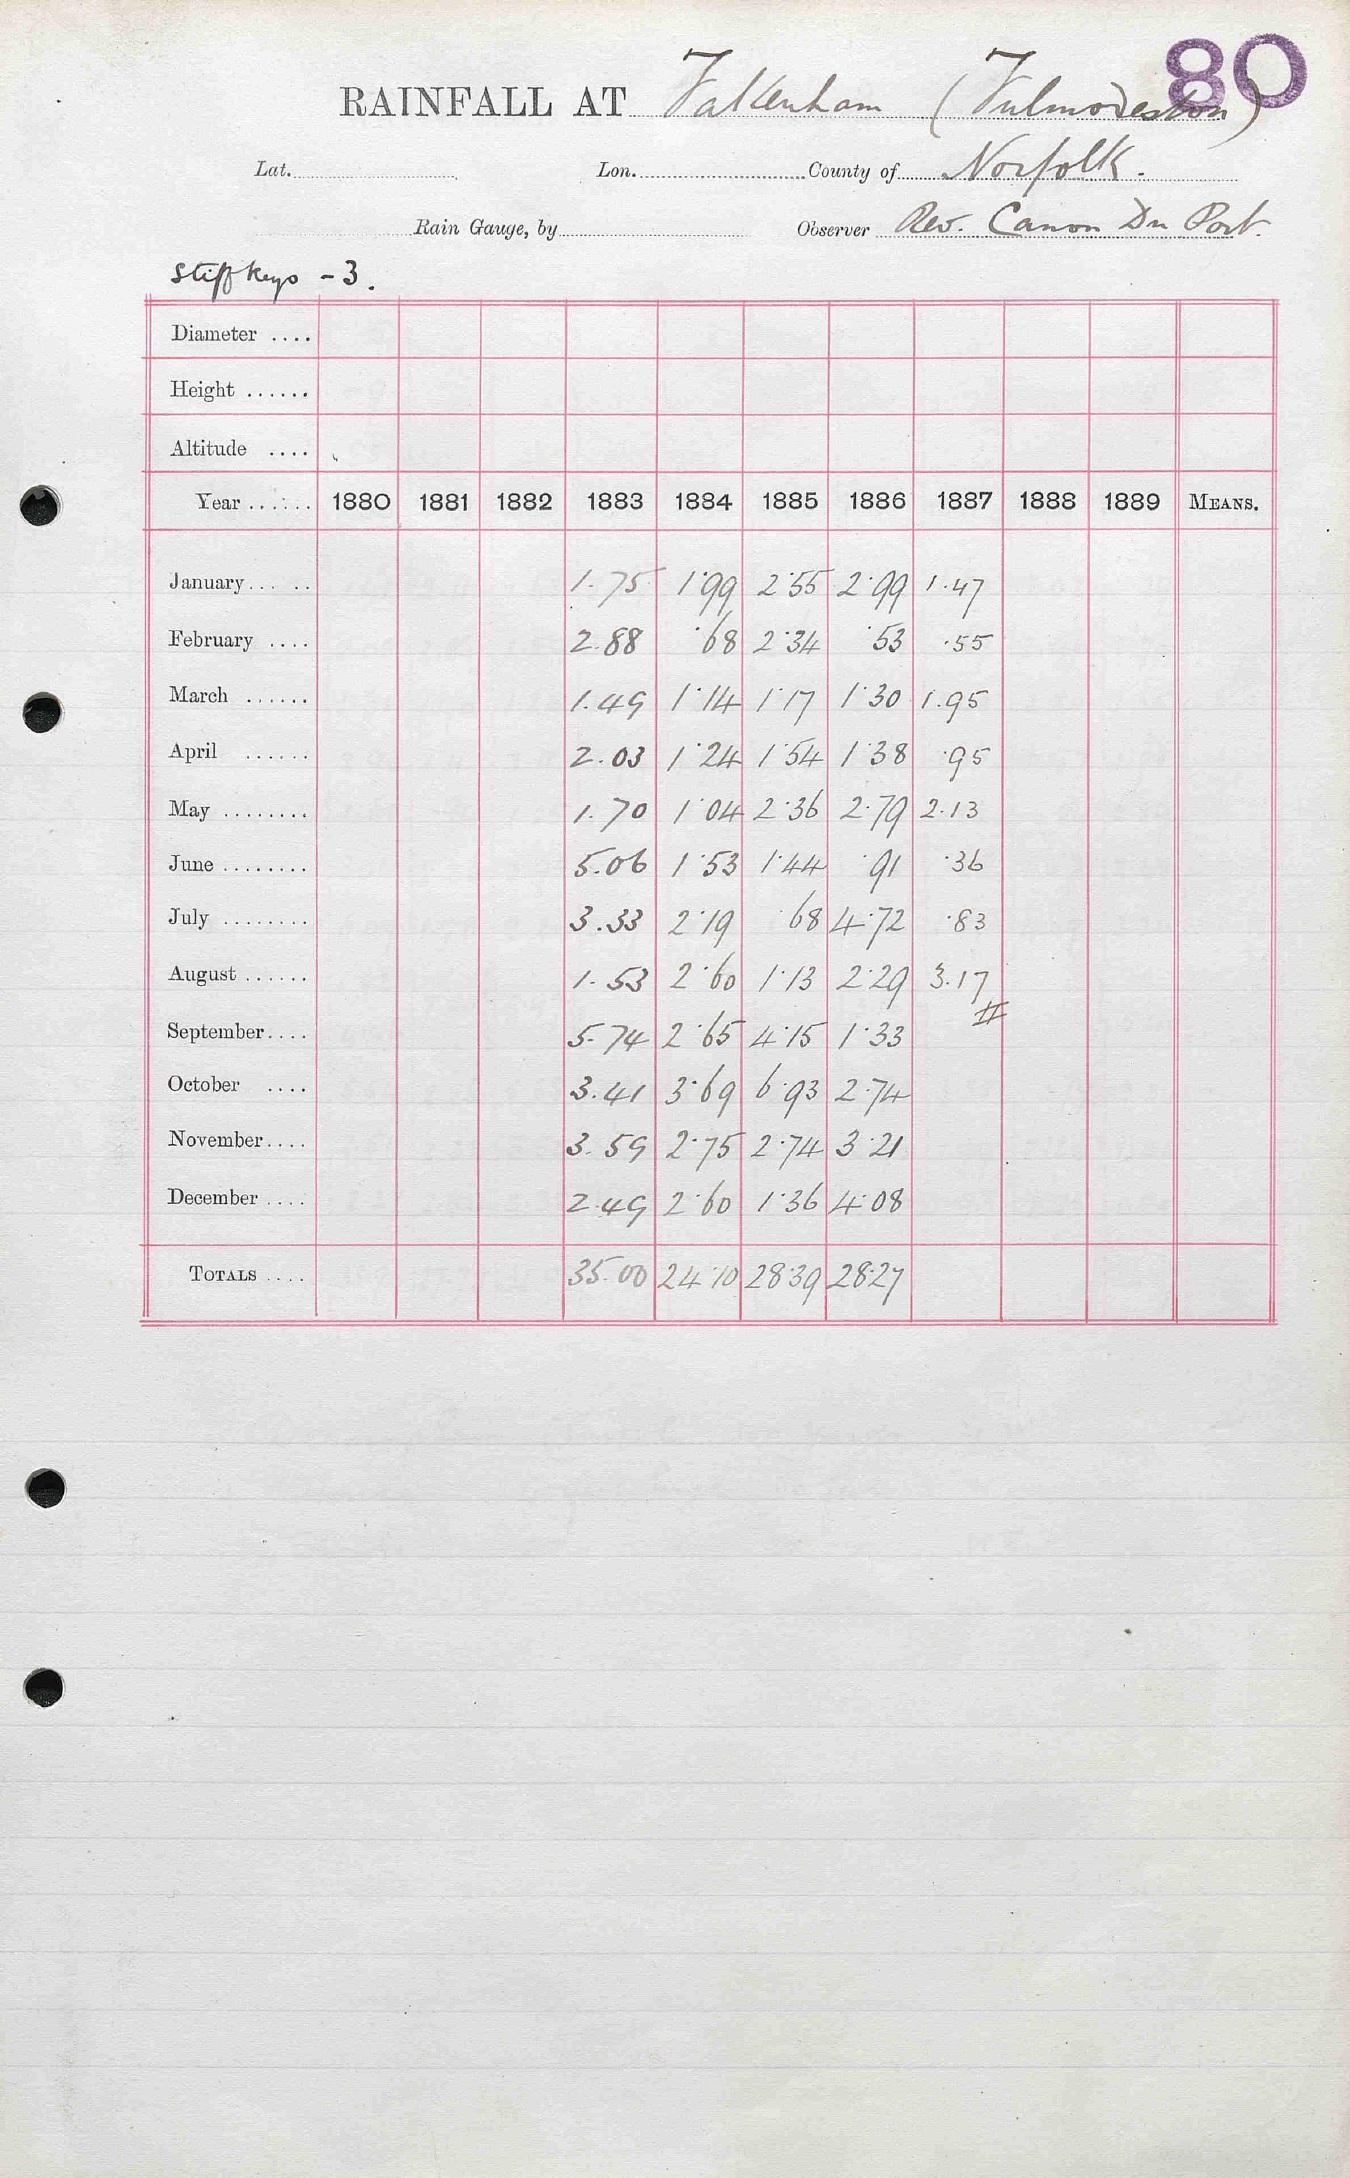 80
RAINFALL AT Fakenham (Fulmodeston)
Lat. Lon. County of Norfolk.
Rain Gauge, by Observer Rev. Canon Du Port.
Stiffkeys - 3.
Diameter ....
Height ......
Altitude ....
Year ...... 1880 1881 1882 1883 1884 1885 1886 1887 1888 1889 MEANS.
January ...... 1.75 1.99 2.55 2.99 1.47
February .... 2.88 .68 2.34 .53 .55
March ...... 1.49 1.14 1.17 1.30 1.95
April ...... 2.03 1.24 1.54 1.38 .95
May ........ 1.70 1.04 2.36 2.79 2.13
June ........ 5.06 1.53 1.44 .91 .36
July ........ 3.33 2.19 .68 4.72 .83
August ...... 1.53 2.60 1.13 2.29 3.17
September .... 5.74 2.65 4.15 1.33
October .... 3.41 3.69 6.93 2.74
November .... 3.59 2.75 2.74 3.21
December .... 2.49 2.60 1.36 4.08
TOTALS .... 35.00 24.10 28.39 28.27